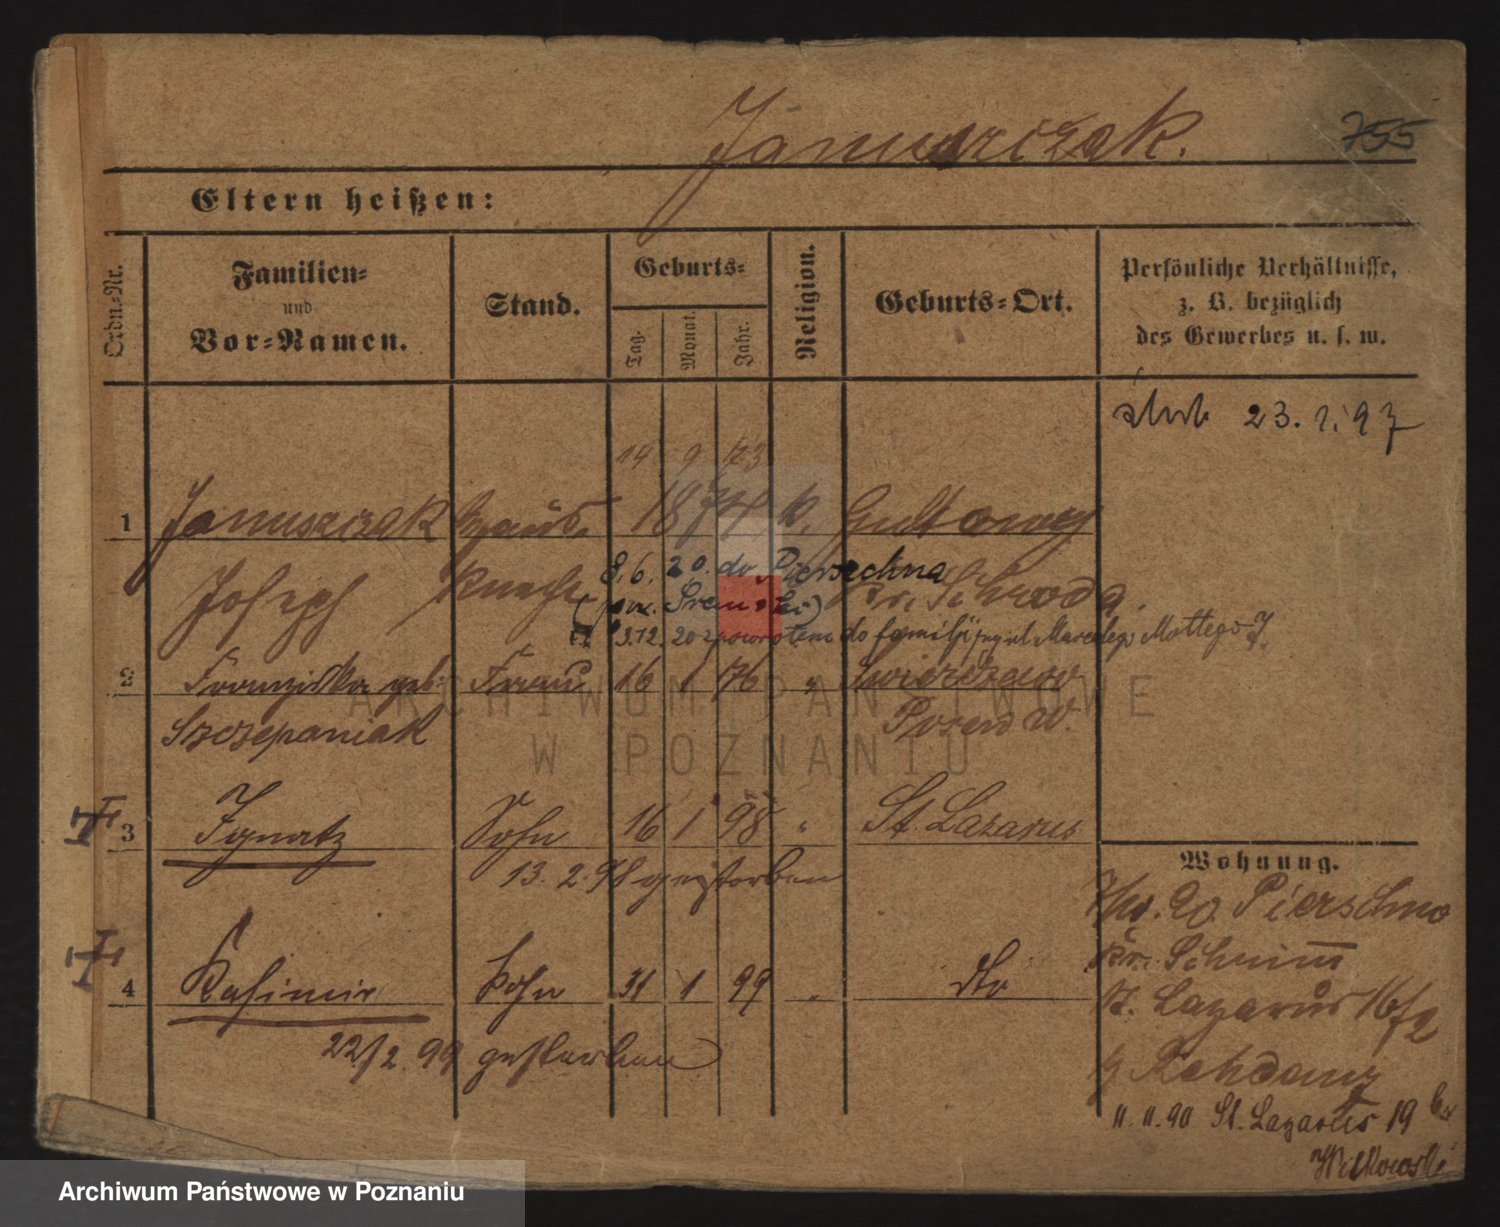 Januszczak.
755
Eltern heißen:
Ordn.-Nr.
Familien-
und
Vor-Namen.
Stand.
Geburts-
Tag.
Monat.
Jahr.
Religion.
Geburts-Ort.
Persönliche Verhältnisse,
z. B. bezüglich
des Gewerbes u. s. w.
23. 1. 97
14 9 73
1 Januszczak 1874 k. Gultowy
Joseph Knecht Kr. Schroda.
8. 6. 20. do Pierzchna
(pow. Śremski)
3.12. 20 zpowrotem do familji Marcelego Mottego 7.
2 Franziska geb. Frau 16 1 76 "
Szczepaniak Posen W.
3 Ignatz Sohn 16 1 98 " St. Lazarus
13. 2. 98 gestorben
4 Kasimir Sohn 31 1 99 " dto
22/2. 99 gestorben
Wohnung.
Pierschno
Kr. Schrimm
St. Lazarus 16/2
b. Rohdang
11. 11. 90 St. Lazarus 19 b.
Witkowski
ARCHIWUM PAŃSTWOWE
W POZNANIU
Archiwum Państwowe w Poznaniu